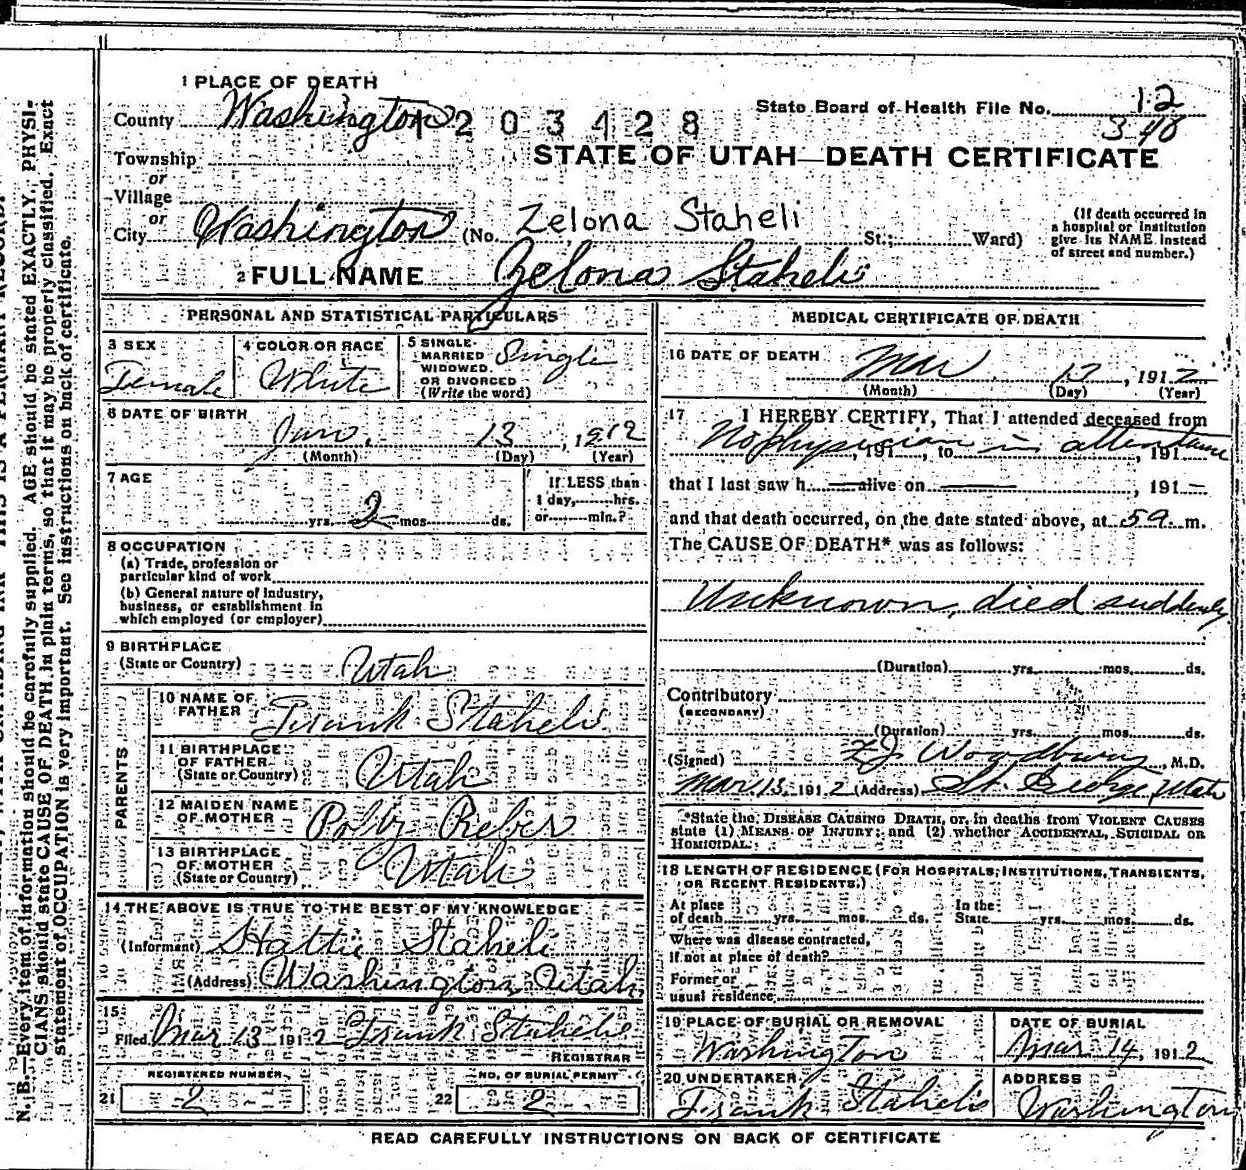 1 PLACE OF DEATH
County Washington 1203428
State Board of Health File No. 12
348
Township
or
Village
or
City Washington (No. Zelona Staheli St.; Ward)
STATE OF UTAH—DEATH CERTIFICATE
(If death occurred in a hospital or institution give its NAME instead of street and number.)
2 FULL NAME Zelona Staheli
PERSONAL AND STATISTICAL PARTICULARS
3 SEX Female
4 COLOR OR RACE White
5 SINGLE, MARRIED WIDOWED, OR DIVORCED (Write the word) Single
6 DATE OF BIRTH
Jan. 13, 1912
(Month) (Day) (Year)
7 AGE
yrs. 2 mos. ds.
If LESS than 1 day, hrs. or min.?
8 OCCUPATION
(a) Trade, profession or particular kind of work
(b) General nature of industry, business, or establishment in which employed (or employer)
9 BIRTHPLACE
(State or Country) Utah
PARENTS
10 NAME OF FATHER Frank Staheli
11 BIRTHPLACE OF FATHER (State or Country) Utah
12 MAIDEN NAME OF MOTHER Reber
13 BIRTHPLACE OF MOTHER (State or Country) Utah
14 THE ABOVE IS TRUE TO THE BEST OF MY KNOWLEDGE
(Informant) Hattie Staheli
(Address) Washington, Utah
15
Filed Mar 13 1912 Frank Staheli
REGISTRAR
REGISTERED NUMBER
21 2
NO. OF BURIAL PERMIT
22 2
MEDICAL CERTIFICATE OF DEATH
16 DATE OF DEATH Mar 13, 1912
(Month) (Day) (Year)
17 I HEREBY CERTIFY, That I attended deceased from
No physician in attendance
, 191 , to , 191
that I last saw h alive on , 191
and that death occurred, on the date stated above, at 5 a. m.
The CAUSE OF DEATH* was as follows:
Unknown, died suddenly
(Duration) yrs. mos. ds.
Contributory
(SECONDARY)
(Duration) yrs. mos. ds.
(Signed) Woodbury, M.D.
Mar 13, 1912 (Address) St. George, Utah
*State the DISEASE CAUSING DEATH, or, in deaths from VIOLENT CAUSES
state (1) MEANS OF INJURY; and (2) whether ACCIDENTAL, SUICIDAL OR
HOMICIDAL.
18 LENGTH OF RESIDENCE (FOR HOSPITALS, INSTITUTIONS, TRANSIENTS,
OR RECENT RESIDENTS.)
At place of death yrs. mos. ds. In the State yrs. mos. ds.
Where was disease contracted,
if not at place of death?
Former or
usual residence
19 PLACE OF BURIAL OR REMOVAL Washington
DATE OF BURIAL Mar 14, 1912
20 UNDERTAKER Frank Staheli
ADDRESS Washington
READ CAREFULLY INSTRUCTIONS ON BACK OF CERTIFICATE
N. B.—Every item of information should be carefully supplied. AGE should be stated EXACTLY. PHYSI-
CIANS should state CAUSE OF DEATH in plain terms, so that it may be properly classified. Exact
statement of OCCUPATION is very important. See instructions on back of certificate.